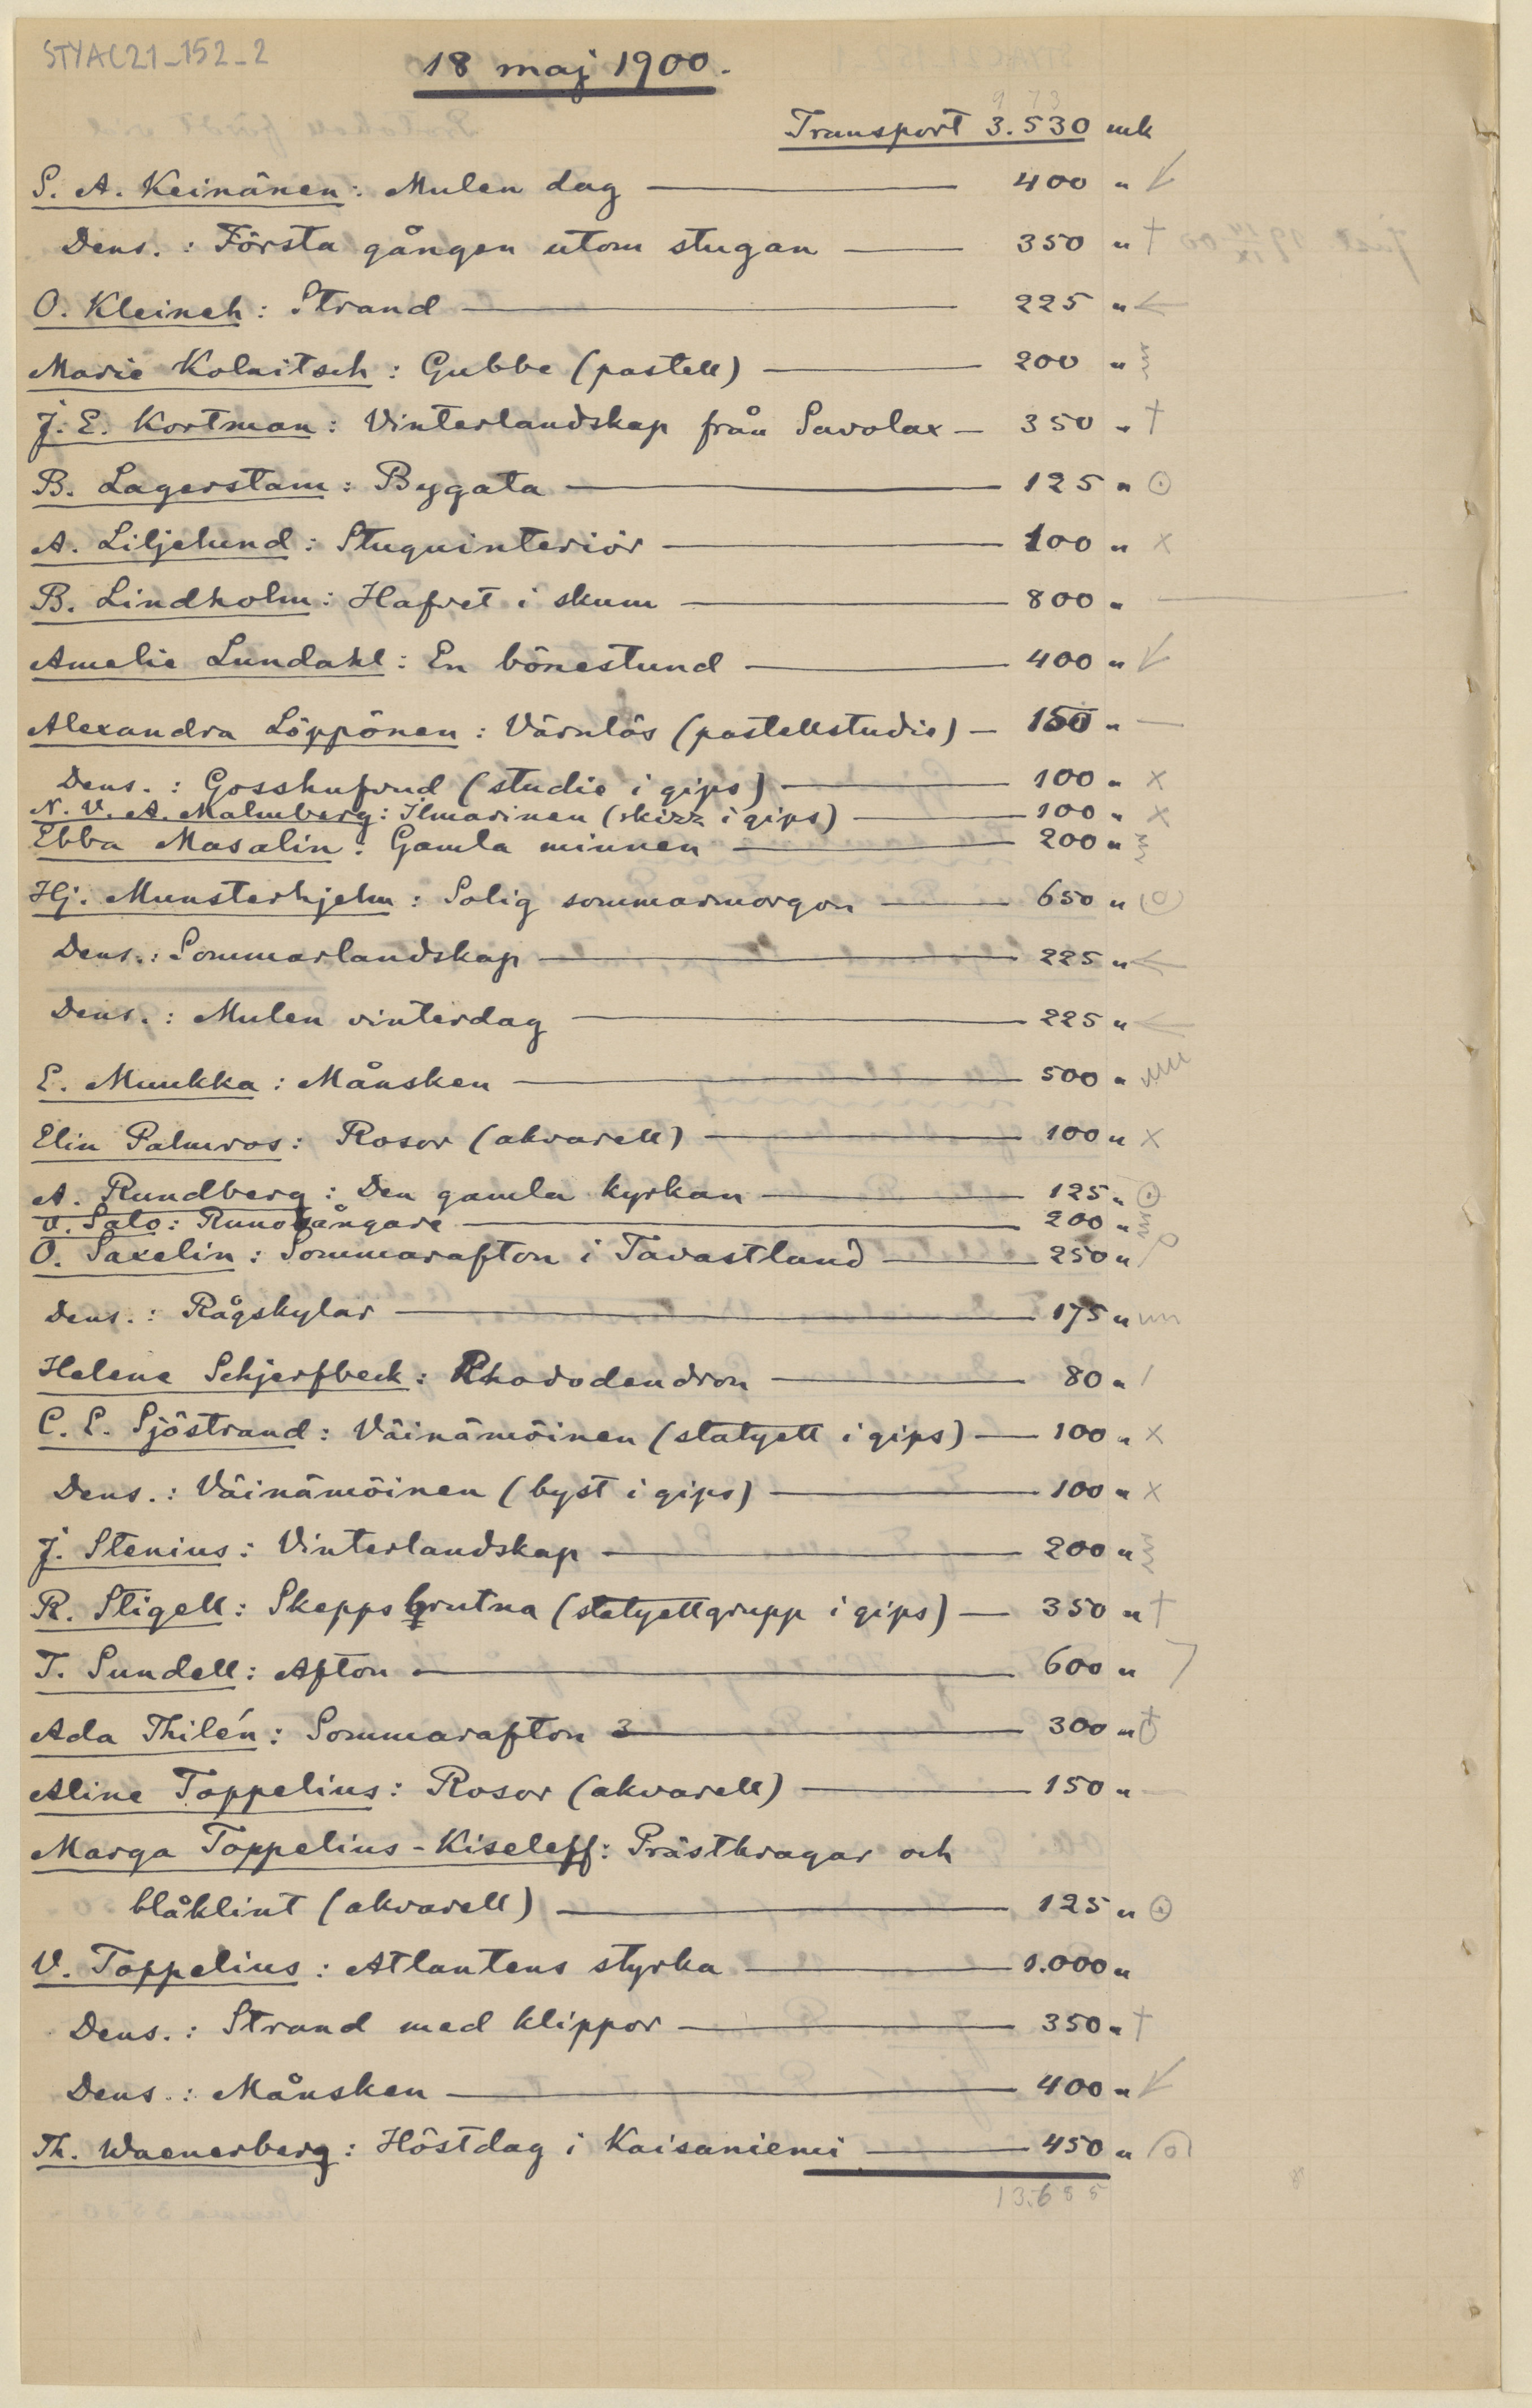 STYAC21_152_2
18 maj 1900.
9 73
Transport 3.530 mk
S. A. Keinänen: Mulen dag — 400 "
Dens.: Första gången utom stugan — 350 "
O. Kleineh: Strand — 225 "
Marie Kolaitsch: Gubbe (pastell) — 200 "
J. E. Kortman: Vinterlandskap från Savolax — 350 "
B. Lagerstam: Bygata — 125 "
A. Liljelund: Stuguinteriör — 100 "
B. Lindholm: Hafvet i skum — 800 "
Amelie Lundahl: En bönestund — 400 "
Alexandra Löppönen: Värnlös (pastellstudie) — 150 "
Dens.: Gosshufvud (studie i gips) — 100 "
N. V. A. Malmberg: Ilmarinen (skizz i gips) — 100 "
Ebba Masalin: Gamla minnen — 200 "
Hj. Munsterhjelm: Solig sommarmorgon — 650 "
Dens.: Sommarlandskap — 225 "
Dens.: Mulen vinterdag — 225 "
E. Muukka: Månsken — 500 "
Elin Palmros: Rosor (akvarell) — 100 "
A. Rundberg: Den gamla kyrkan — 125 "
V. Salo: Runosångare — 200 "
O. Saxelin: Sommarafton i Tavastland — 250 "
Dens.: Rågskylar — 175 "
Helene Schjerfbeck: Rhododendron — 80 "
C. E. Sjöstrand: Väinämöinen (statyett i gips) — 100 "
Dens.: Väinämöinen (byst i gips) — 100 "
J. Stenius: Vinterlandskap — 200 "
R. Stigell: Skeppsbrutna (statyettgrupp i gips) — 350 "
T. Sundell: Afton — 600 "
Ada Thilén: Sommarafton — 300 "
Aline Toppelius: Rosor (akvarell) — 150 "
Marga Toppelius-Kiseleff: Prästkragar och
blåklint (akvarell) — 125 "
V. Toppelius: Atlantens styrka — 1.000 "
Dens.: Strand med klippor — 350 "
Dens.: Månsken — 400 "
Th. Waenerberg: Höstdag i Kaisaniemi — 450 "
13.685